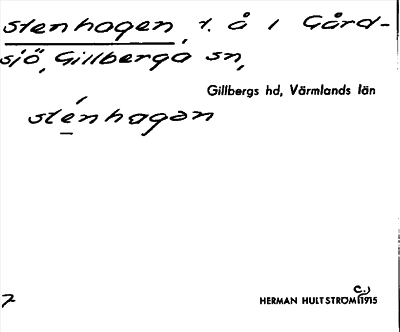 stenhagen, t. å 1 Gård-
sjö, Gillberga sn,
Gillbergs hd, Värmlands län
sténhagan
HERMAN HULTSTRÖM (c.) 1915